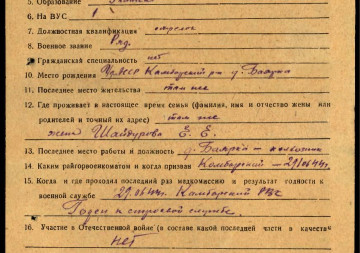 5. Образование
6. На ВУС 1
7. Должностная квалификация стрелок
8. Военное звание Ряд.
9. Гражданская специальность нет
10. Место рождения Камбарский р-н д.
11. Последнее место жительства там же
12. Где проживает в настоящее время семья (фамилия, имя и отчество жены или
родителей и точный их адрес) там же
жена Шайдурова Е. Е.
13. Последнее место работы и должность колхозник
14. Каким райгорвоенкоматом и когда призван Камбарский – 29/06 44 г.
15. Когда и где проходил последний раз медкомиссию и результат годности к
военной службе 29.06.44 г. Камбарский РВК
Годен к строевой службе.
16. Участие в Отечественной войне (в составе какой последней части в качеств
нет